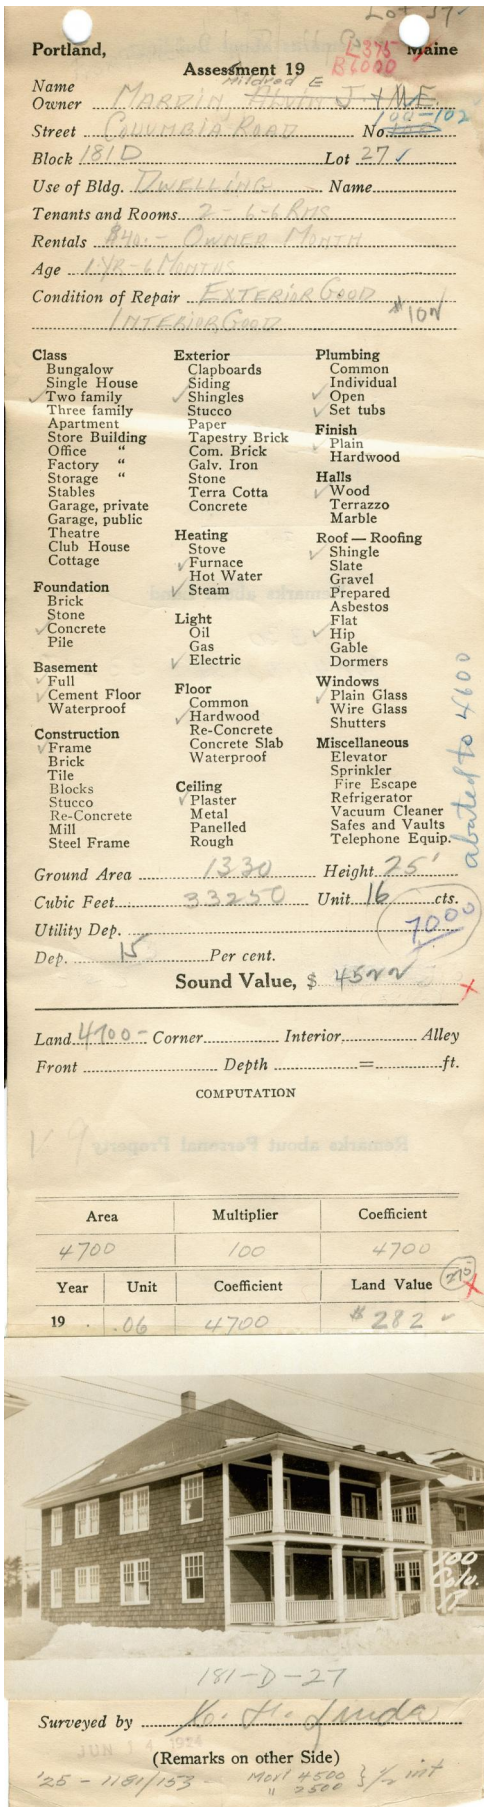 Lot 37
Portland, Maine
L375
B6000
Assessment 19
Mildred E
Name
Owner MARDIN, ALVIN J. & M.E.
100-102
Street COLUMBIA ROAD No 100
Block 181 D Lot 27 ✓
Use of Bldg. DWELLING Name
Tenants and Rooms 2-6-6 RMS
Rentals $40.- OWNER MONTH
Age 1 YR-6 MONTHS
Condition of Repair EXTERIOR GOOD
INTERIOR GOOD
Class
Bungalow
Single House
✓ Two family
Three family
Apartment
Store Building
Office "
Factory "
Storage "
Stables
Garage, private
Garage, public
Theatre
Club House
Cottage
Foundation
Brick
Stone
✓ Concrete
Pile
Basement
✓ Full
✓ Cement Floor
Waterproof
Construction
✓ Frame
Brick
Tile
Blocks
Stucco
Re-Concrete
Mill
Steel Frame
Exterior
Clapboards
Siding
✓ Shingles
Stucco
Paper
Tapestry Brick
Com. Brick
Galv. Iron
Stone
Terra Cotta
Concrete
Heating
Stove
✓ Furnace
Hot Water
✓ Steam
Light
Oil
Gas
✓ Electric
Floor
Common
✓ Hardwood
Re-Concrete
Concrete Slab
Waterproof
Ceiling
✓ Plaster
Metal
Panelled
Rough
Plumbing
Common
✓ Individual
✓ Open
✓ Set tubs
Finish
✓ Plain
Hardwood
Halls
✓ Wood
Terrazzo
Marble
Roof — Roofing
✓ Shingle
Slate
Gravel
Prepared
Asbestos
✓ Flat
✓ Hip
Gable
Dormers
Windows
✓ Plain Glass
Wire Glass
Shutters
Miscellaneous
Elevator
Sprinkler
Fire Escape
Refrigerator
Vacuum Cleaner
Safes and Vaults
Telephone Equip.
abated to 4600
Ground Area 1330 Height 25'
Cubic Feet 33250 Unit 16 cts.
Utility Dep.
7000
Dep. 15 Per cent.
Sound Value, $ 45
Land 4700- Corner Interior Alley
Front Depth = ft.
COMPUTATION
Remarks about Personal Property
Area Multiplier Coefficient
4700 100 4700
Year Unit Coefficient Land Value
275
19 .06 4700 $ 282 ✓
100
Colu.
181-D-27
Surveyed by
JUN 14 1924
(Remarks on other Side)
'25 - 1181/153 - Mort 4500 } 1/2 int
" 2500